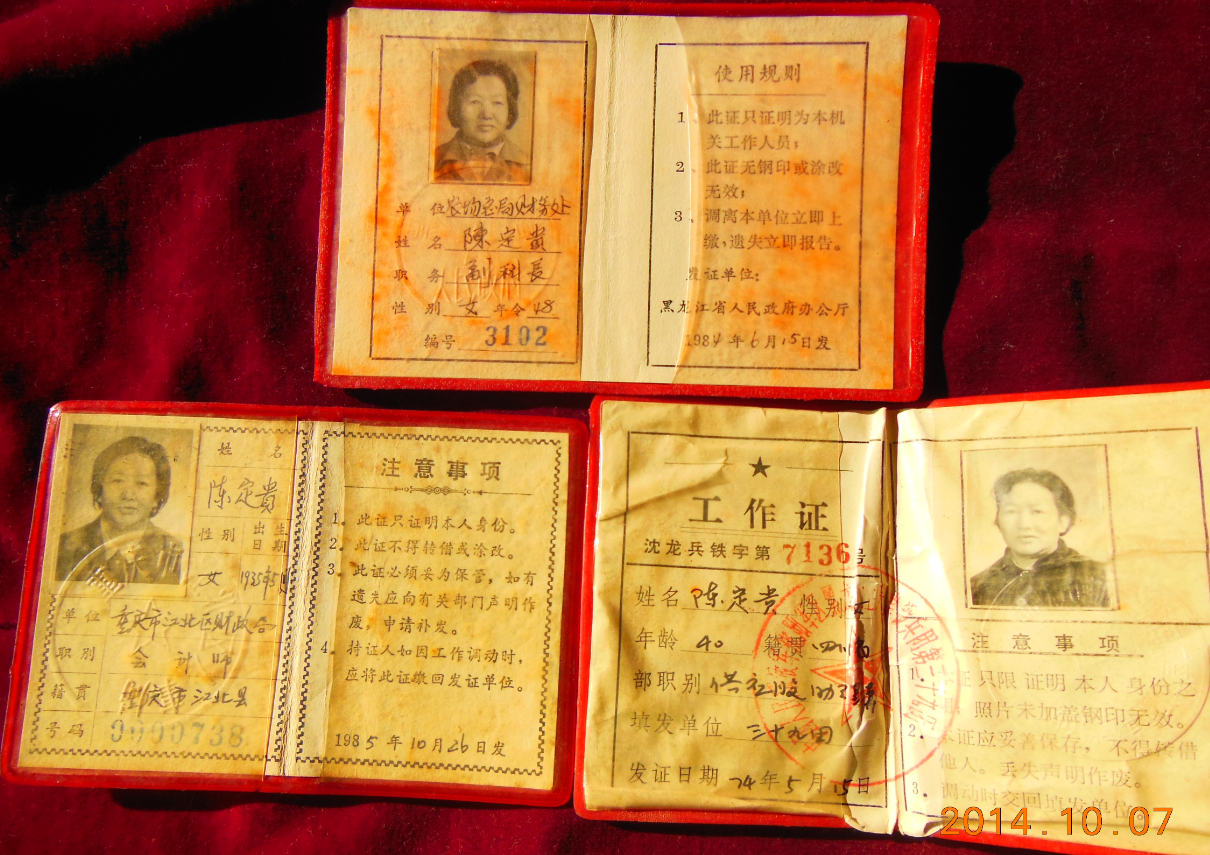 单 位 农场总局财务处
姓 名 陳定贵
职 务 副科長
性 别 女 年令 48
编号 3102
使用规则
1、此证只证明为本机
关工作人员;
2、此证无钢印或涂改
无效;
3、调离本单位立即上
缴,遗失立即报告。
发证单位:
黑龙江省人民政府办公厅
1984年6月15日发
姓 名
陈定貴
性别 出生日期
女 1935年5月
单位 重庆市江北区财政会
职别 会计师
籍贯 重庆市江北县
号码 0000738
注意事项
1.此证只证明本人身份。
2.此证不得转借或涂改。
3.此证必须妥为保管,如有
遗失应向有关部门声明作
废,申请补发。
4.持证人如因工作调动时,
应将此证缴回发证单位。
1985年10月26日发
★
工作证
沈龙兵铁字第7136号
姓名 陈定贵 性别 女
年龄 40 籍贯 四川
部职别
填发单位 三十九团
发证日期 74年5月15日
注意事项
1.本证只限证明本人身份之
用,照片未加盖钢印无效。
2.本证应妥善保存,不得转借
他人。丢失声明作废。
3.调动时交回填发单位。
2014.10.07